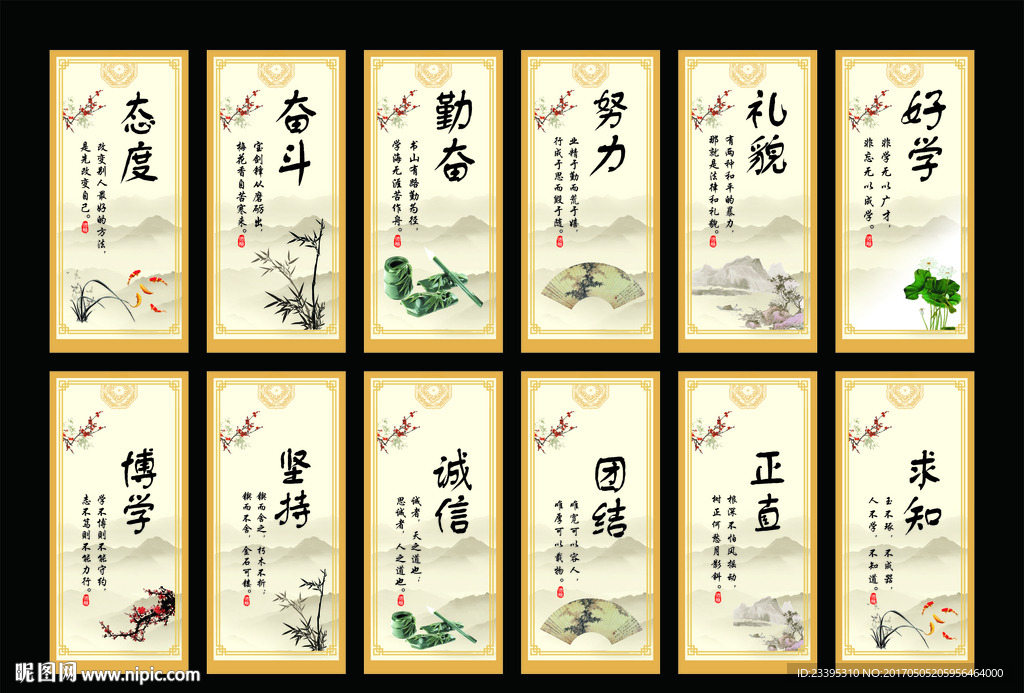 态度
改变别人最好的方法，
是先改变自己。
奋斗
宝剑锋从磨砺出，
梅花香自苦寒来。
勤奋
书山有路勤为径，
学海无涯苦作舟。
努力
业精于勤而荒于嬉，
行成于思而毁于随。
礼貌
有两种和平的暴力，
那就是法律和礼貌。
好学
非学无以广才，
非志无以成学。
博学
学不博则不能守约，
志不笃则不能力行。
坚持
锲而舍之，朽木不折；
锲而不舍，金石可镂。
诚信
诚者，天之道也；
思诚者，人之道也。
团结
唯宽可以容人，
唯厚可以载物。
正直
根深不怕风摇动，
树正何愁月影斜。
求知
玉不琢，不成器，
人不学，不知道。
昵图网 www.nipic.com
ID:23395310 NO:20170505205956464000